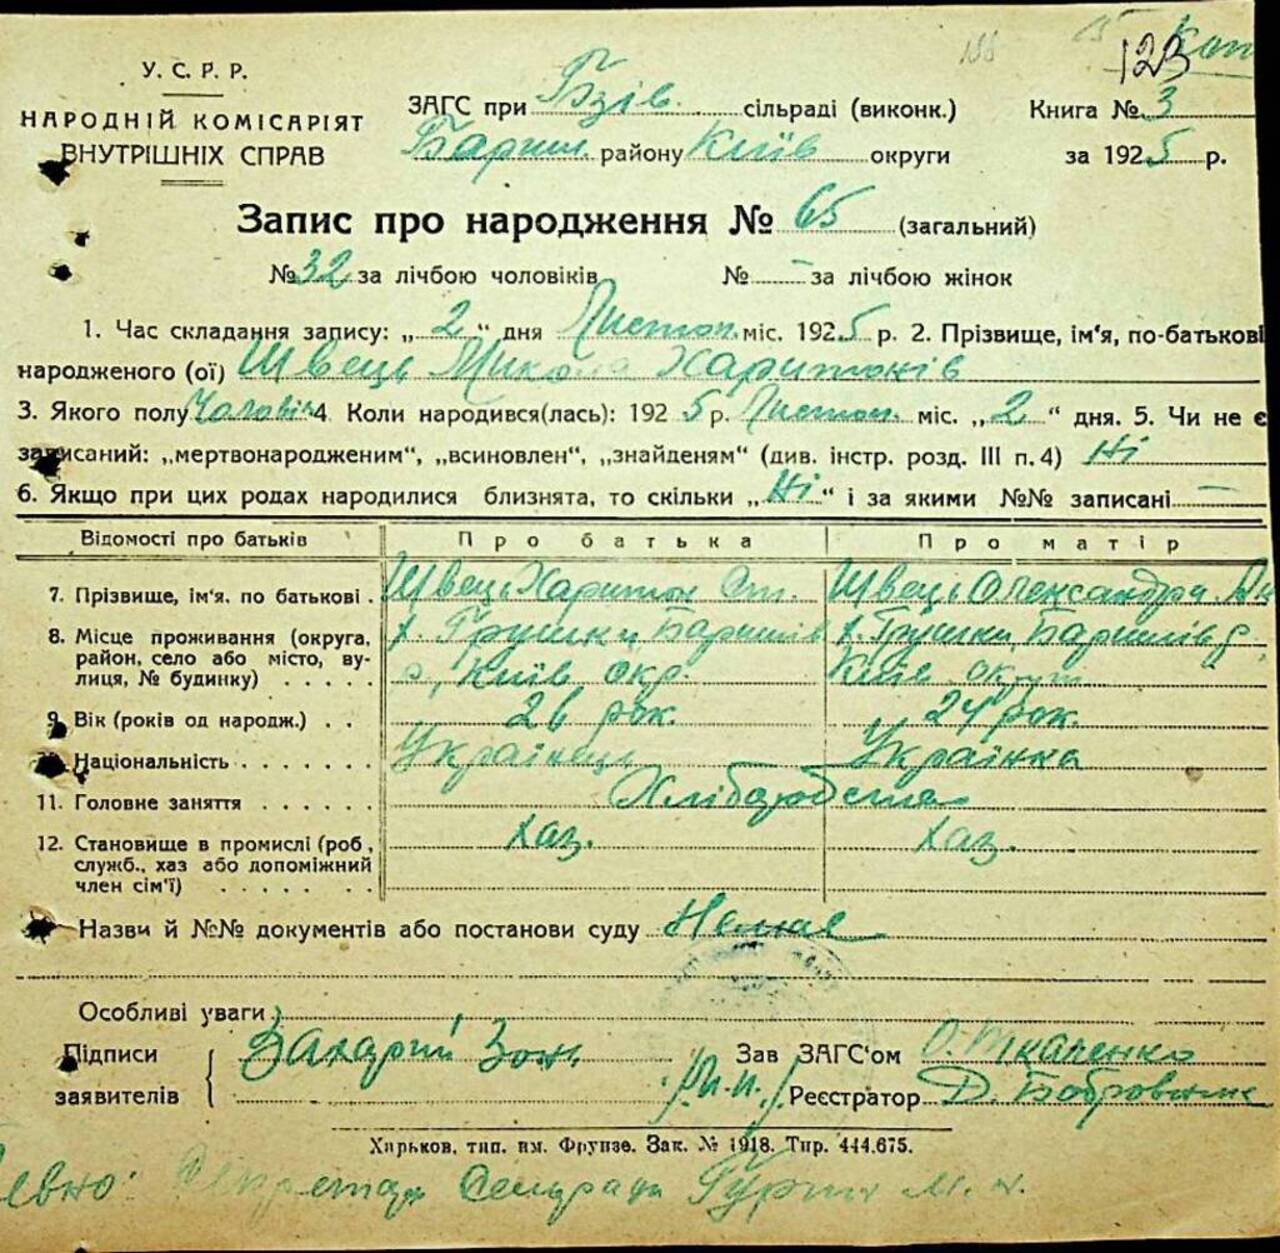 123
У. С. Р. Р.
НАРОДНІЙ КОМІСАРІЯТ
ВНУТРІШНІХ СПРАВ
ЗАГС при Бзів. сільраді (виконк.)
Бариш. району Київ округи
Книга № 3
за 1925 р.
Запис про народження № 65 (загальний)
№ 32 за лічбою чоловіків № – за лічбою жінок
1. Час складання запису: „2“ дня Листоп. міс. 1925 р. 2. Прізвище, ім‘я, по-батькові
народженого (ої) Швець Микола Харитонів
3. Якого полу Чоловік 4. Коли народився(лась): 1925 р. Листоп. міс. „2“ дня. 5. Чи не є
записаний: „мертвонародженим“, „всиновлен“, „знайденям“ (див. інстр. розд. III п. 4) Ні
6. Якщо при цих родах народилися близнята, то скільки „Ні“ і за якими №№ записані –
Відомості про батьків Про батька Про матір
7. Прізвище, ім‘я, по батькові . Швець Харитон Ст. Швець Олександра
8. Місце проживання (округа, х. Грушки Баришів х. Грушки, Баришів р.
район, село або місто, ву-
лиця, № будинку) . . . . . Київ окр. Київ округи
9. Вік (років од народж.) . . 26 рок. 24 рок.
10. Національність . . . . . . . Українець Українка
11. Головне заняття . . . . . . Хліборобство
12. Становище в промислі (роб., хаз. хаз.
служб., хаз або допоміжний
член сім‘ї) . . . . . . .
Назви й №№ документів або постанови суду Немає
Особливі уваги
Підписи Захарій Зав ЗАГС‘ом О. Ткаченко
заявителів Реєстратор Д. Бобровник
Харьков, тип. им. Фрунзе. Зак. № 1918. Тир. 444.675.
Секретар Сільради